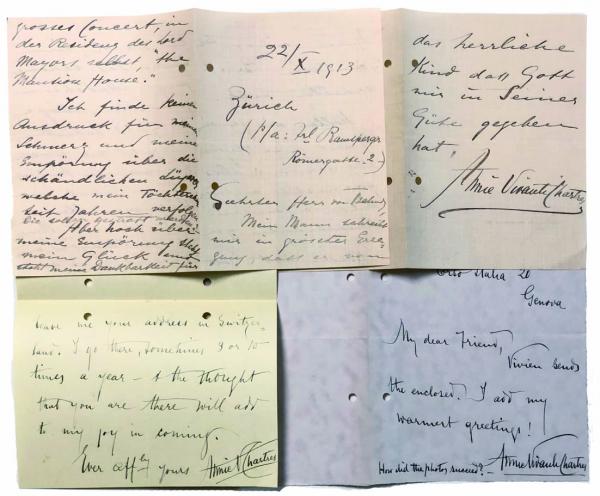 grosses Concert, in
der Residenz des Lord
Mayors selbst, "the
Mansion House."
Ich finde keinen
Ausdruck für meinen
Schmerz und meine
Empörung über die
schändlichen Lügen
welche mein Töchterchen
seit Jahren verfolgen
Die sollen gestraft werden!
Aber hoch über
meine Empörung steht
mein Glück und
steht meine Dankbarkeit für
22/X 1913
Zürich
(p/a: Frl.
Römergasse 2.)
Geehrter Herr von
Mein Mann schreibt
mir in grösster Erre-
gung, dass er vom
das herrliche
Kind dass Gott
mir in Seiner
Güte gegeben
hat.
Annie Vivanti Chartres
leave me your address in Switzer-
land. I go there, sometimes 9 or 10
times a year - & the thought
that you are there will add
to my joy in coming.
Ever affly yours Annie V Chartres
Italia 20
Genova
My dear Friend,
Vivien sends
the enclosed. I add my
warmest greetings!
How did the photos succeed? Annie Vivanti Chartres